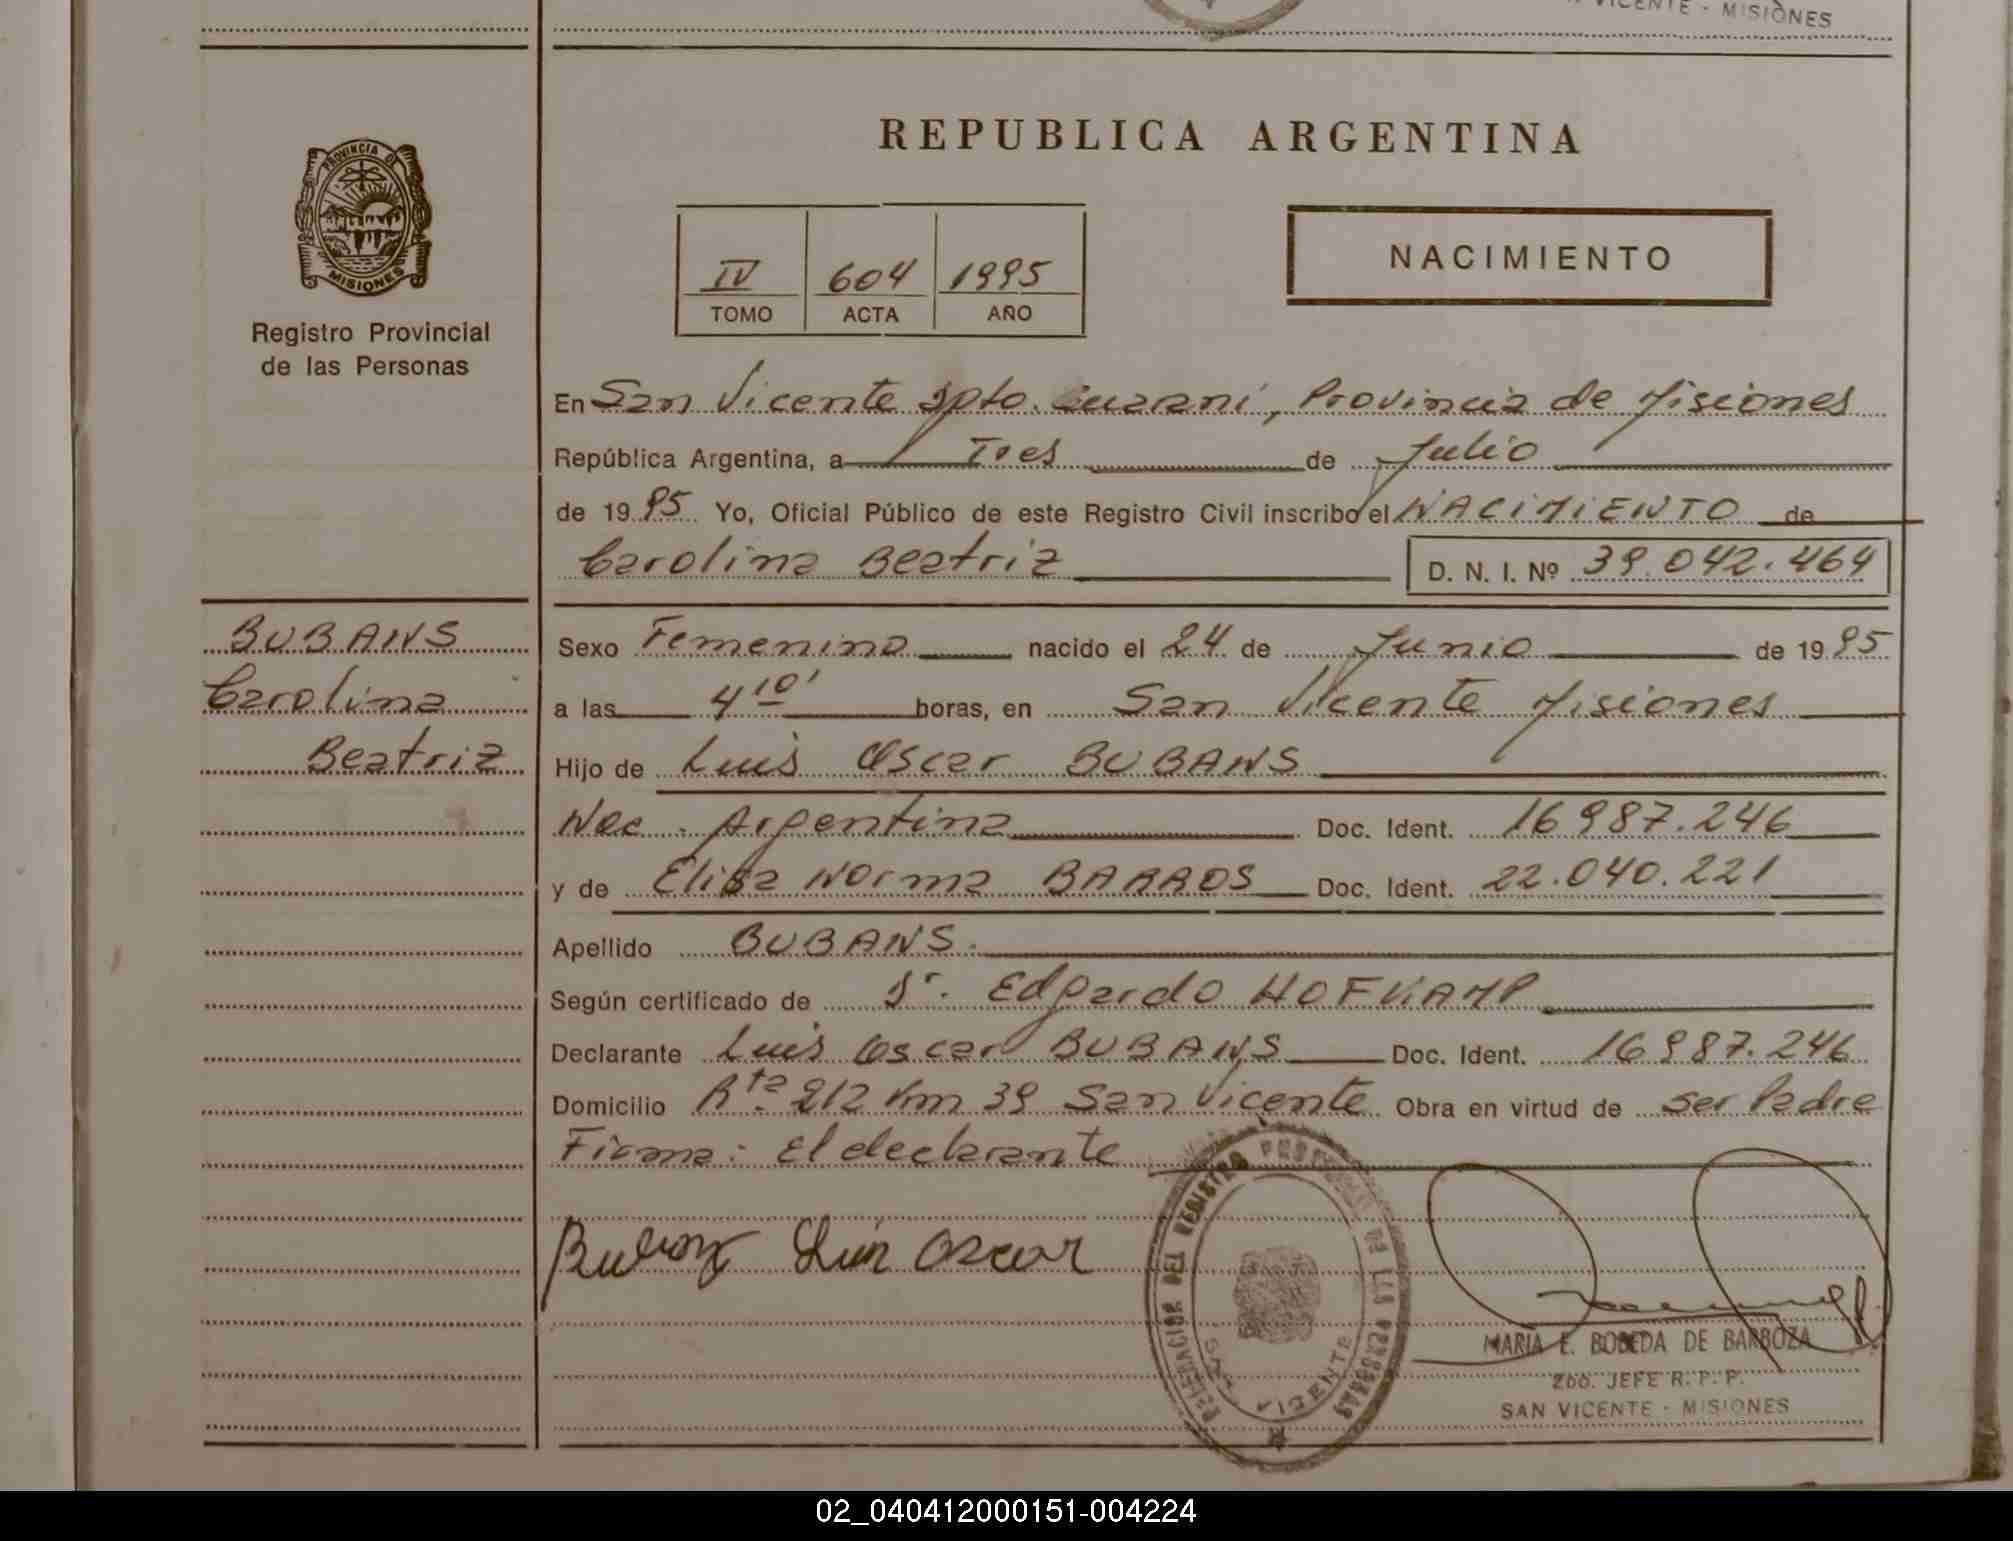 VICENTE - MISIONES
PROVINCIA DE
MISIONES
Registro Provincial
de las Personas
REPUBLICA ARGENTINA
IV 604 1995
TOMO ACTA AÑO
NACIMIENTO
En San Vicente Dpto. Guarani, Provincia de Misiones
República Argentina, a Tres de Julio
de 1995 Yo, Oficial Público de este Registro Civil inscribo el NACIMIENTO de
Carolina Beatriz D. N. I. Nº 39.042.464
BUBANS
Carolina
Beatriz
Sexo Femenino nacido el 24 de Junio de 1995
a las 4 10' horas, en San Vicente Misiones
Hijo de Luis Oscar BUBANS
Nac. Argentina Doc. Ident. 16987.246
y de Elisa Norma BARROS Doc. Ident. 22.040.221
Apellido BUBANS.
Según certificado de Dr. Edgardo HOFKAMP
Declarante Luis Oscar BUBANS Doc. Ident. 16987.246
Domicilio Rta. 212 Km 39 San Vicente Obra en virtud de ser Padre
Firma: El declarante
Bubans Luis Oscar
DELEGACION DEL REGISTRO PROVINCIAL DE LAS PERSONAS
SAN VICENTE
MARIA E. BOBEDA DE BARBOZA
2do. JEFE R. P. P.
SAN VICENTE - MISIONES
02_040412000151-004224